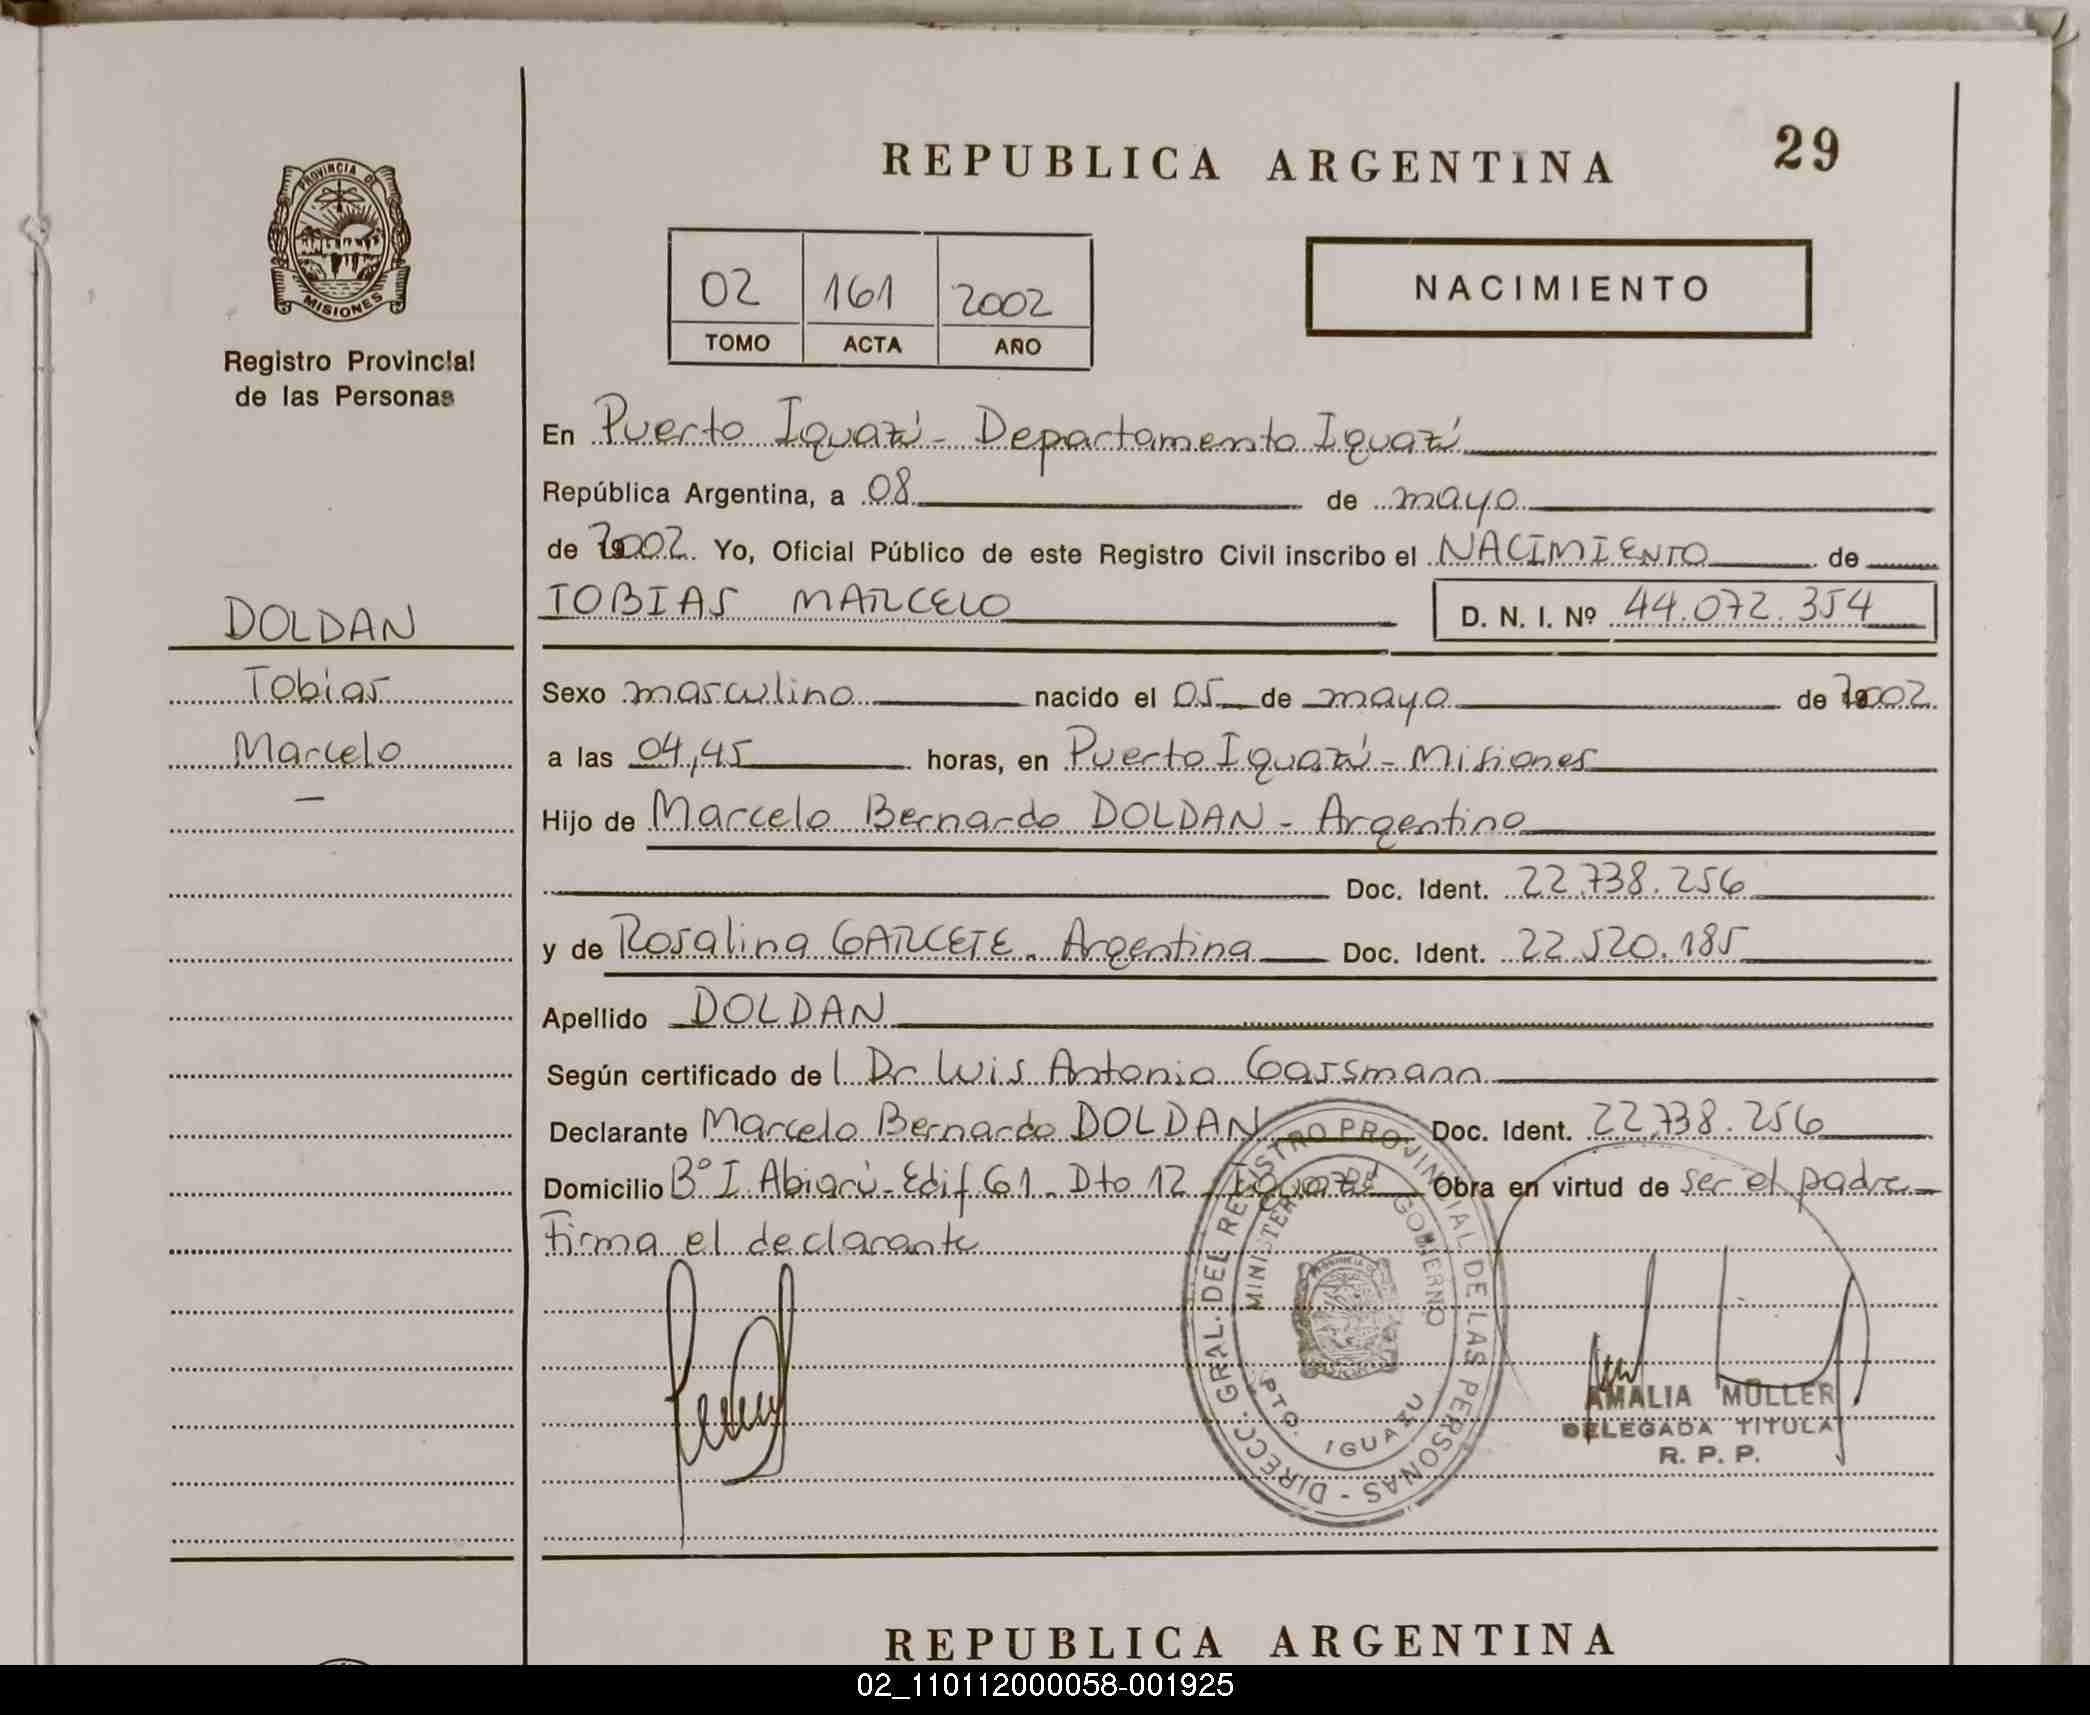 REPUBLICA ARGENTINA
29
PROVINCIA DE
MISIONES
Registro Provincial
de las Personas
02 161 2002
TOMO ACTA AÑO
NACIMIENTO
En Puerto Iguazú - Departamento Iguazú
República Argentina, a 08 de mayo
de 2002. Yo, Oficial Público de este Registro Civil inscribo el NACIMIENTO de
TOBIAS MARCELO D. N. I. Nº 44.072.354
DOLDAN
Tobias
Marcelo
Sexo masculino nacido el 05 de mayo de 2002
a las 04,45 horas, en Puerto Iguazú - Misiones
Hijo de Marcelo Bernardo DOLDAN - Argentino
Doc. Ident. 22.738.256
y de Rosalina GARCETE. Argentina Doc. Ident. 22.520.185
Apellido DOLDAN
Según certificado de l Dr Luis Antonio Gassmann
Declarante Marcelo Bernardo DOLDAN Doc. Ident. 22.738.256
Domicilio Bº I. Abiarú - Edif 61. Dto 12 Iguazú Obra en virtud de ser el padre
Firma el declarante
DIRECC. GRAL. DEL REGISTRO PROVINCIAL DE LAS PERSONAS -
GOBIERNO
PTO. IGUAZU
AMALIA MÜLLER
DELEGADA TITULA
R. P. P.
REPUBLICA ARGENTINA
02_110112000058-001925